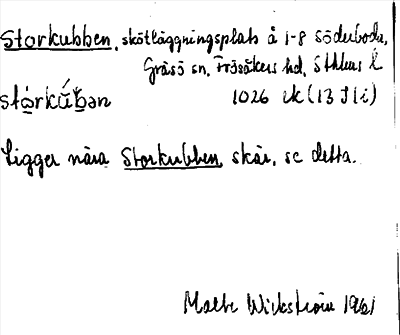 Storkubben, skötläggningsplats å 1-8 Söderboda,
Gräsö sn, Frösåkers hd, Sthlms l.
stórkùb̆ən
1026 vk (13 I 1 i)
Ligger nära Storkubben, skär, se detta.
Malte Wickström 1961